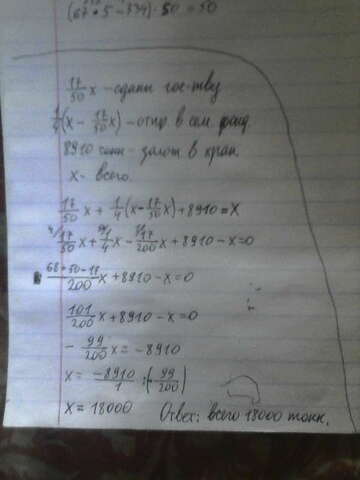 (67 · 5 − 334) · 50 = 50
17/50 x - сданы гос-тву
1/4(x − 17/50 x) - отпр. в сем. фонд
8910 тонн - залож в хран.
x - всего.
17/50 x + 1/4 (x − 17/50 x) + 8910 = x
4/ 17/50 x + 50/ 1/4 x − 1/ 17/200 x + 8910 − x = 0
68+50−17/200 x + 8910 − x = 0
101/200 x + 8910 − x = 0
− 99/200 x = −8910
x = −8910/1 : (− 99/200)
x = 18000
Ответ: всего 18000 тонн.